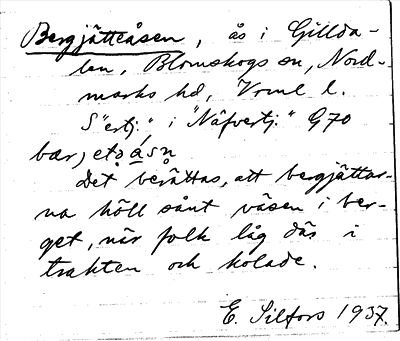 Bergjätteåsen, ås i Gillda-
len, Blomskogs sn, Nord-
marks hd, Vrml l.
S "ertj." i "Näfvertj." G70
bær) etǫ ́a ́sn̥
Det berättas, att bergjättar-
na höll sånt väsen i ber-
get, när folk låg där i
trakten och kolade.
E. Silfors 1937.